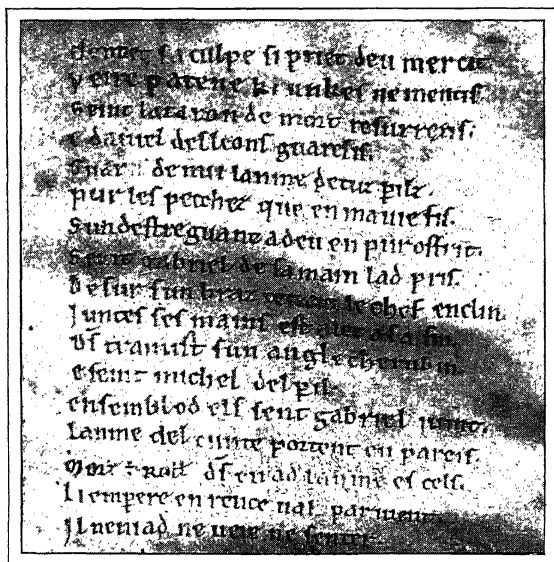 cleimet sa culpe si priet deu mercit.
veire patene ki unkes ne mentis.
Seint lazaron de mort resurrexis.
e daniel des leons guaresis.
Guaris de mei lanme de tuz pilz.
pur les pecchez que en ma vie fis.
Sun destre guant a deu en puroffrit.
Seint gabriel de sa main lad pris.
Desur sun braz teneit le chef enclin.
Juntes ses mains est alet a sa fin.
Ds tramist sun angle cherubin.
e seint michel del pil.
ensemblod els sent gabriel i vint.
Lanme del cunte portent en pareis.
Morz ÷ Roll ds en ad lanme es cels.
Li empere en
Il nen i ad ne veie ne senter.